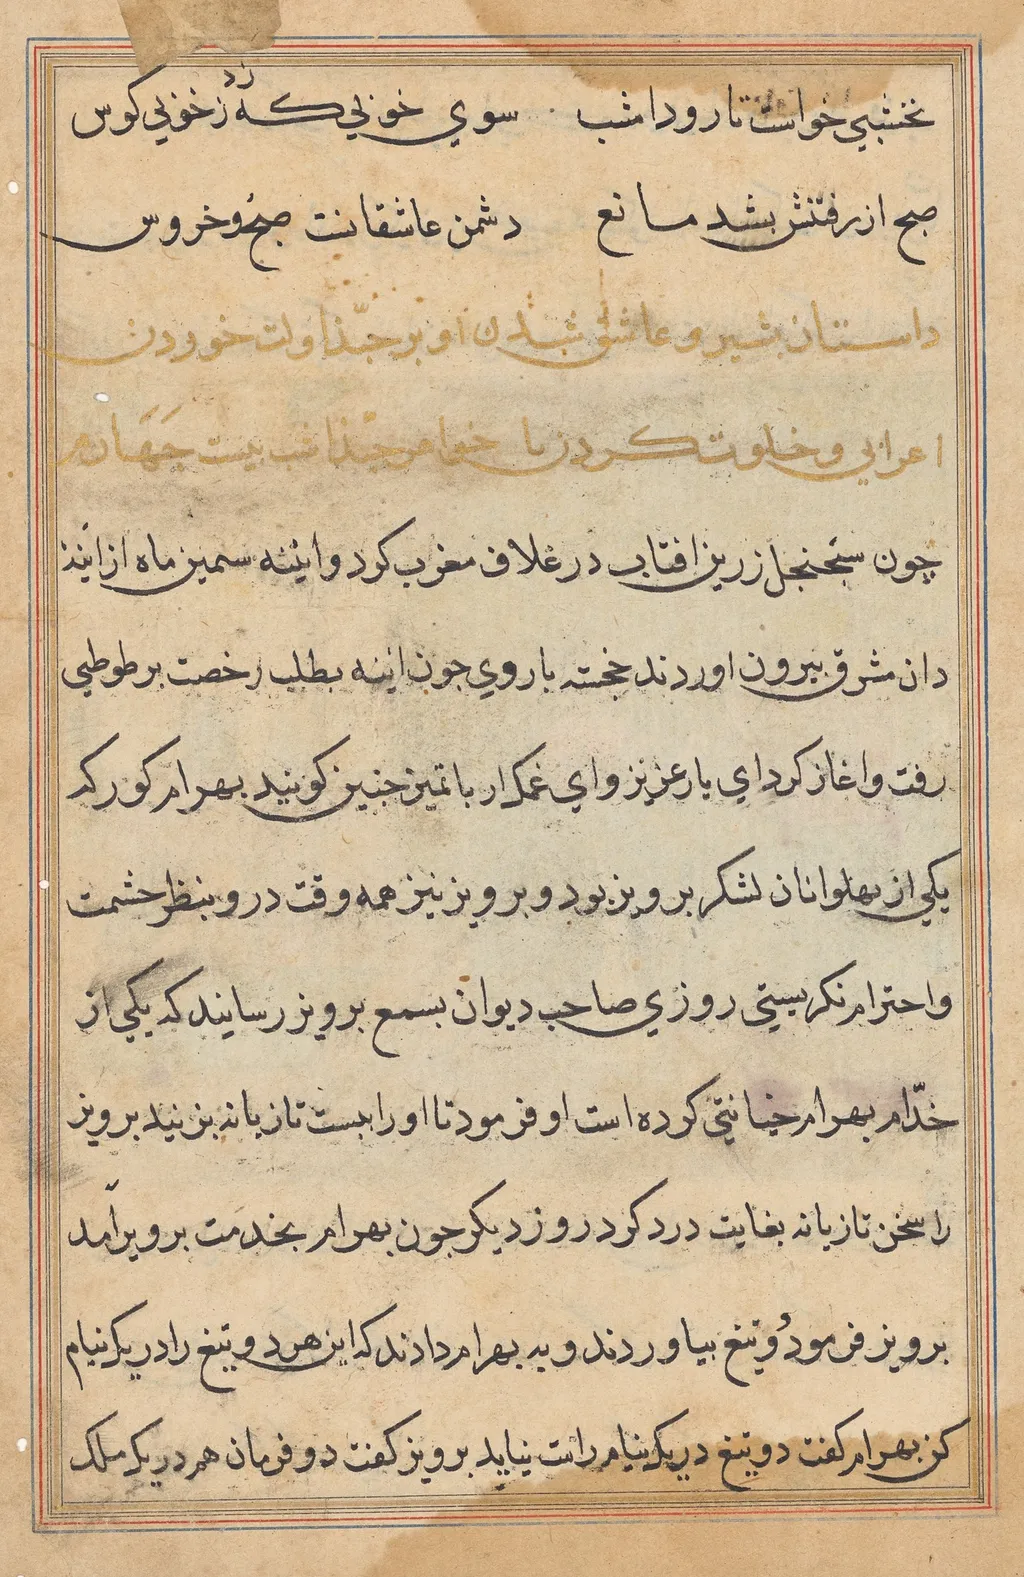 نخشبي خواست تا رود امشب سوي خوبي كه زد ز خوبي كوس
صبح از رفتنش بشد مانع دشمن عاشقانت صبح و خروس
داستان بشير و عاشق شدن او بر جنذا ولت خوردن
اعرابي و خلوت كردن با خواهر جنذا شب بيست جهارم
چون سجنجل زرين افتاب در غلاف مغرب كرد و ايينه سمين ماه از ايينه
دان مشرق بيرون اوردند خجسته با روي جون ايينه بطلب رخصت بر طوطي
رفت و اغاز كرد اي يار عزيز و اي غمكسار با تميز جنين كويند بهرام كور كه
يكي از پهلوانان لشكر برويز بود و برويز نيز همه وقت در و بنظر حشمت
و احترام نكريستي روزي صاحب ديوان بسمع برويز رسانيد كه يكي از
خدّام بهرام خيانتي كرده است او فرمود تا او را بيست تازيانه بزنند برويز
را سخن تازيانه بغايت درد كرد روز ديكر جون بهرام بخدمت برويز آمد
برويز فرمود دو تيغ بياوردند و به بهرام دادند كه اين هر دو تيغ را در يك نيام
كن بهرام كفت دو تيغ در يك نيام راست نيايد برويز كفت دو فرمان هم در يك ملك